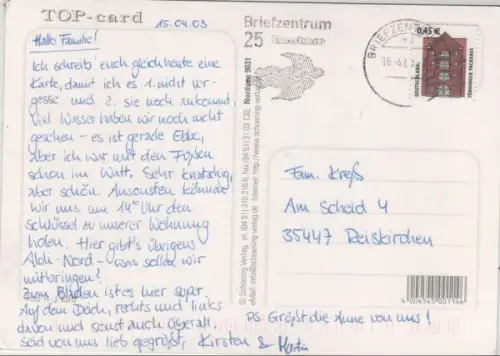 TOP-card
15.04.03
Hallo Familie!
Ich schreib euch gleich heute eine
Karte, damit ich es 1. nicht ver-
gesse und 2. sie noch ankommt.
Viel Wasser haben wir noch nicht
gesehen - es ist gerade Ebbe,
aber ich war mit den Füßen
schon im Watt. Sehr knatschig,
aber schön. Ansonsten können
wir uns um 14 Uhr den
Schlüssel zu unserer Wohnung
holen. Hier gibt's übrigens
Aldi-Nord - was sollen wir
mitbringen?
Zum Baden ist es hier super.
Auf dem Deich, rechts und links
davon und sonst auch überall.
Seid von uns lieb gegrüßt, Kirsten & Martin
Briefzentrum
25
BRIEFZENT
0,45 €
DEUTSCHLAND
Nordsee 9031
© Schöning Verlag
Internet: http://www.schoening-verlag.de
eMail: info@schoening-verlag.de
Fam. Kreß
Am Scheid 4
35447 Reiskirchen
4 004545 001146
PS: Grüßt die Anne von uns!